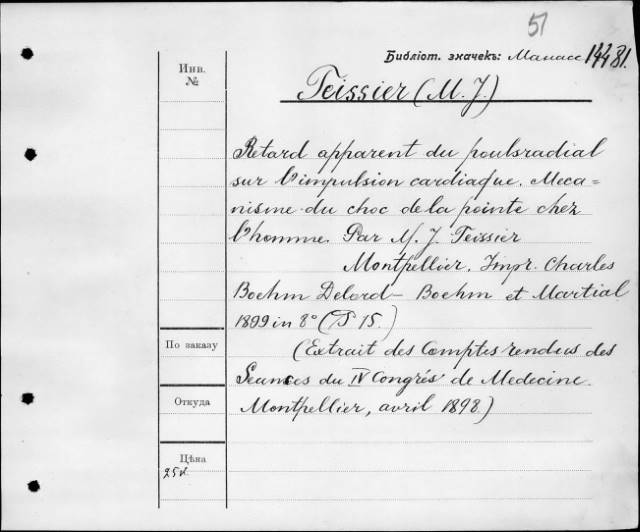 51
Библіот. значекъ: Манасс 14481.
Инв.
№
Teissier (M. J.)
Retard apparent du poulsradial
sur l'impulsion cardiaque. Meca=
nisme du choc de la pointe chez
l'homme. Par M. J. Teissier
Montpellier. Impr. Charles
Boehm Delord- Boehm et Martial
1899 in 8° (P 15.)
По заказу
(Extrait des Comptes rendus des
Seances du IV Congrés de Medecine.
Откуда
Montpellier, avril 1898.)
Цѣна
25к.